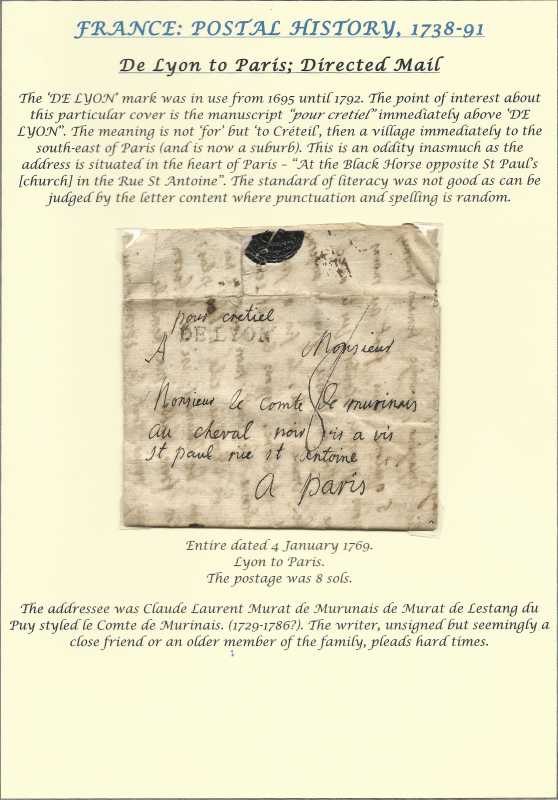 FRANCE: POSTAL HISTORY, 1738-91
De Lyon to Paris; Directed Mail
The ‘DE LYON’ mark was in use from 1695 until 1792. The point of interest about
this particular cover is the manuscript “pour cretiel” immediately above ‘DE
LYON”. The meaning is not ‘for’ but ‘to Créteil’, then a village immediately to the
south-east of Paris (and is now a suburb). This is an oddity inasmuch as the
address is situated in the heart of Paris – “At the Black Horse opposite St Paul’s
[church] in the Rue St Antoine”. The standard of literacy was not good as can be
judged by the letter content where punctuation and spelling is random.
pour cretiel
DE LYON
A Monsieur
Monsieur le comte de murinais
au cheval noir vis a vis
st paul rue st antoine
a paris
8
Entire dated 4 January 1769.
Lyon to Paris.
The postage was 8 sols.
The addressee was Claude Laurent Murat de Murunais de Murat de Lestang du
Puy styled le Comte de Murinais. (1729-1786?). The writer, unsigned but seemingly a
close friend or an older member of the family, pleads hard times.